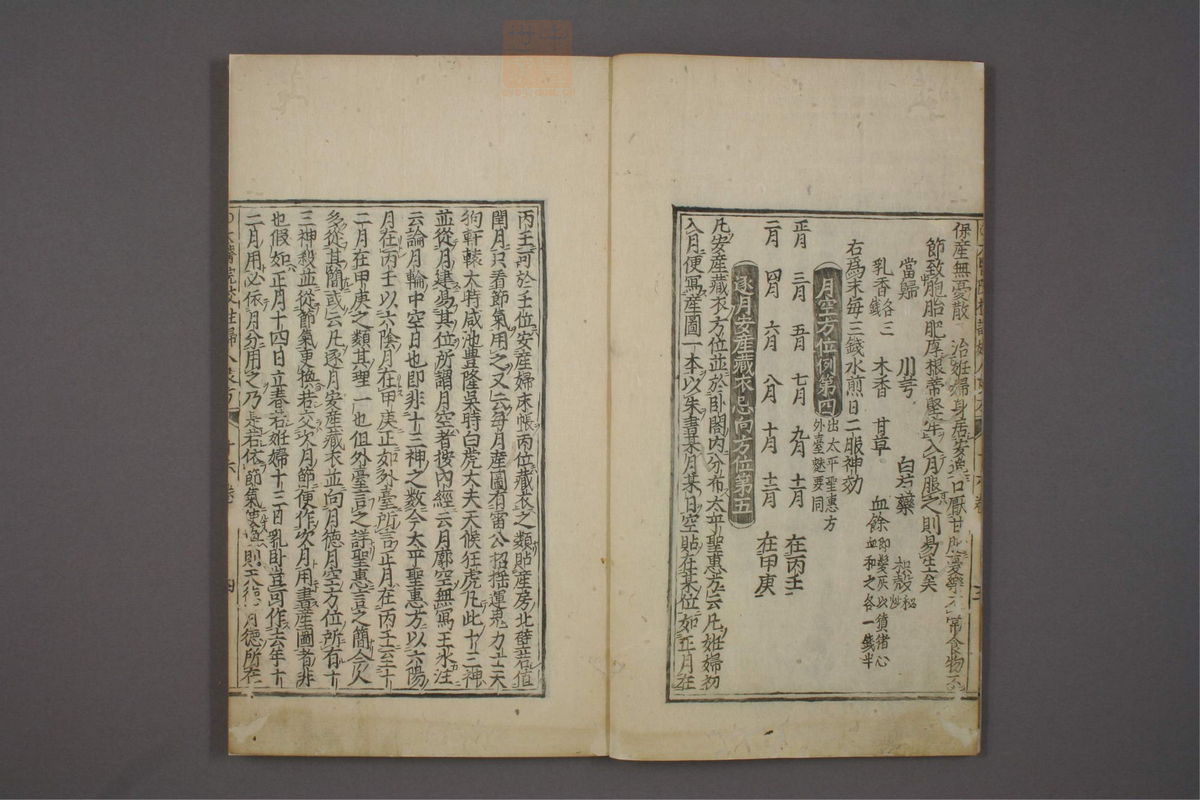 保産無憂散 治妊婦身居安逸口厭甘肥憂樂不常食物不
節致胞胎肥厚根蒂堅牢入月服之則易生矣
當歸 川芎 白芍藥 枳殼炒
乳香各三錢 木香 甘草 血餘即髮灰以㹠猪心血和之各一錢半
右爲末每三錢水煎日二服神効
月空方位例第四出太平聖惠方外臺秘要同
正月 三月 五月 七月 九月 十一月 在丙壬
二月 四月 六月 八月 十月 十二月 在甲庚
逐月安産藏衣忌向方位第五
凡安産藏衣方位並於卧閣内分布太平聖惠方云凡妊婦初
入月便冩産圖一本以朱書某月某日空貼在某位如正月在
丙壬可於壬位安産婦床帳丙位藏衣之類貼産房北壁若值
閏月只看節氣用之又云每月産圖有雷公招搖運鬼力士天
狗軒轅大時咸池豊隆吴時白虎大夫天候狂虎凡此十三神
並從月建易其位所謂月空者按内經云月廓空無冩王氷注
云論月輪中空日也即非十三神之數今太平聖惠方以六陽
月在丙壬以六陰月在甲庚正如外臺所言正月在丙壬
二月在甲庚之類其理一也但外臺言之詳聖惠言之簡今人
多從其簡或云凡逐月安産藏衣並向月德月空方位所有十
三神殺並從節氣更換若交次月節便作次月用書産圖者非
也假如正月十四日立春若妊婦十三日乳卧豈可作去年十
二月用必依月分用之乃是若依節氣則天德月德所在